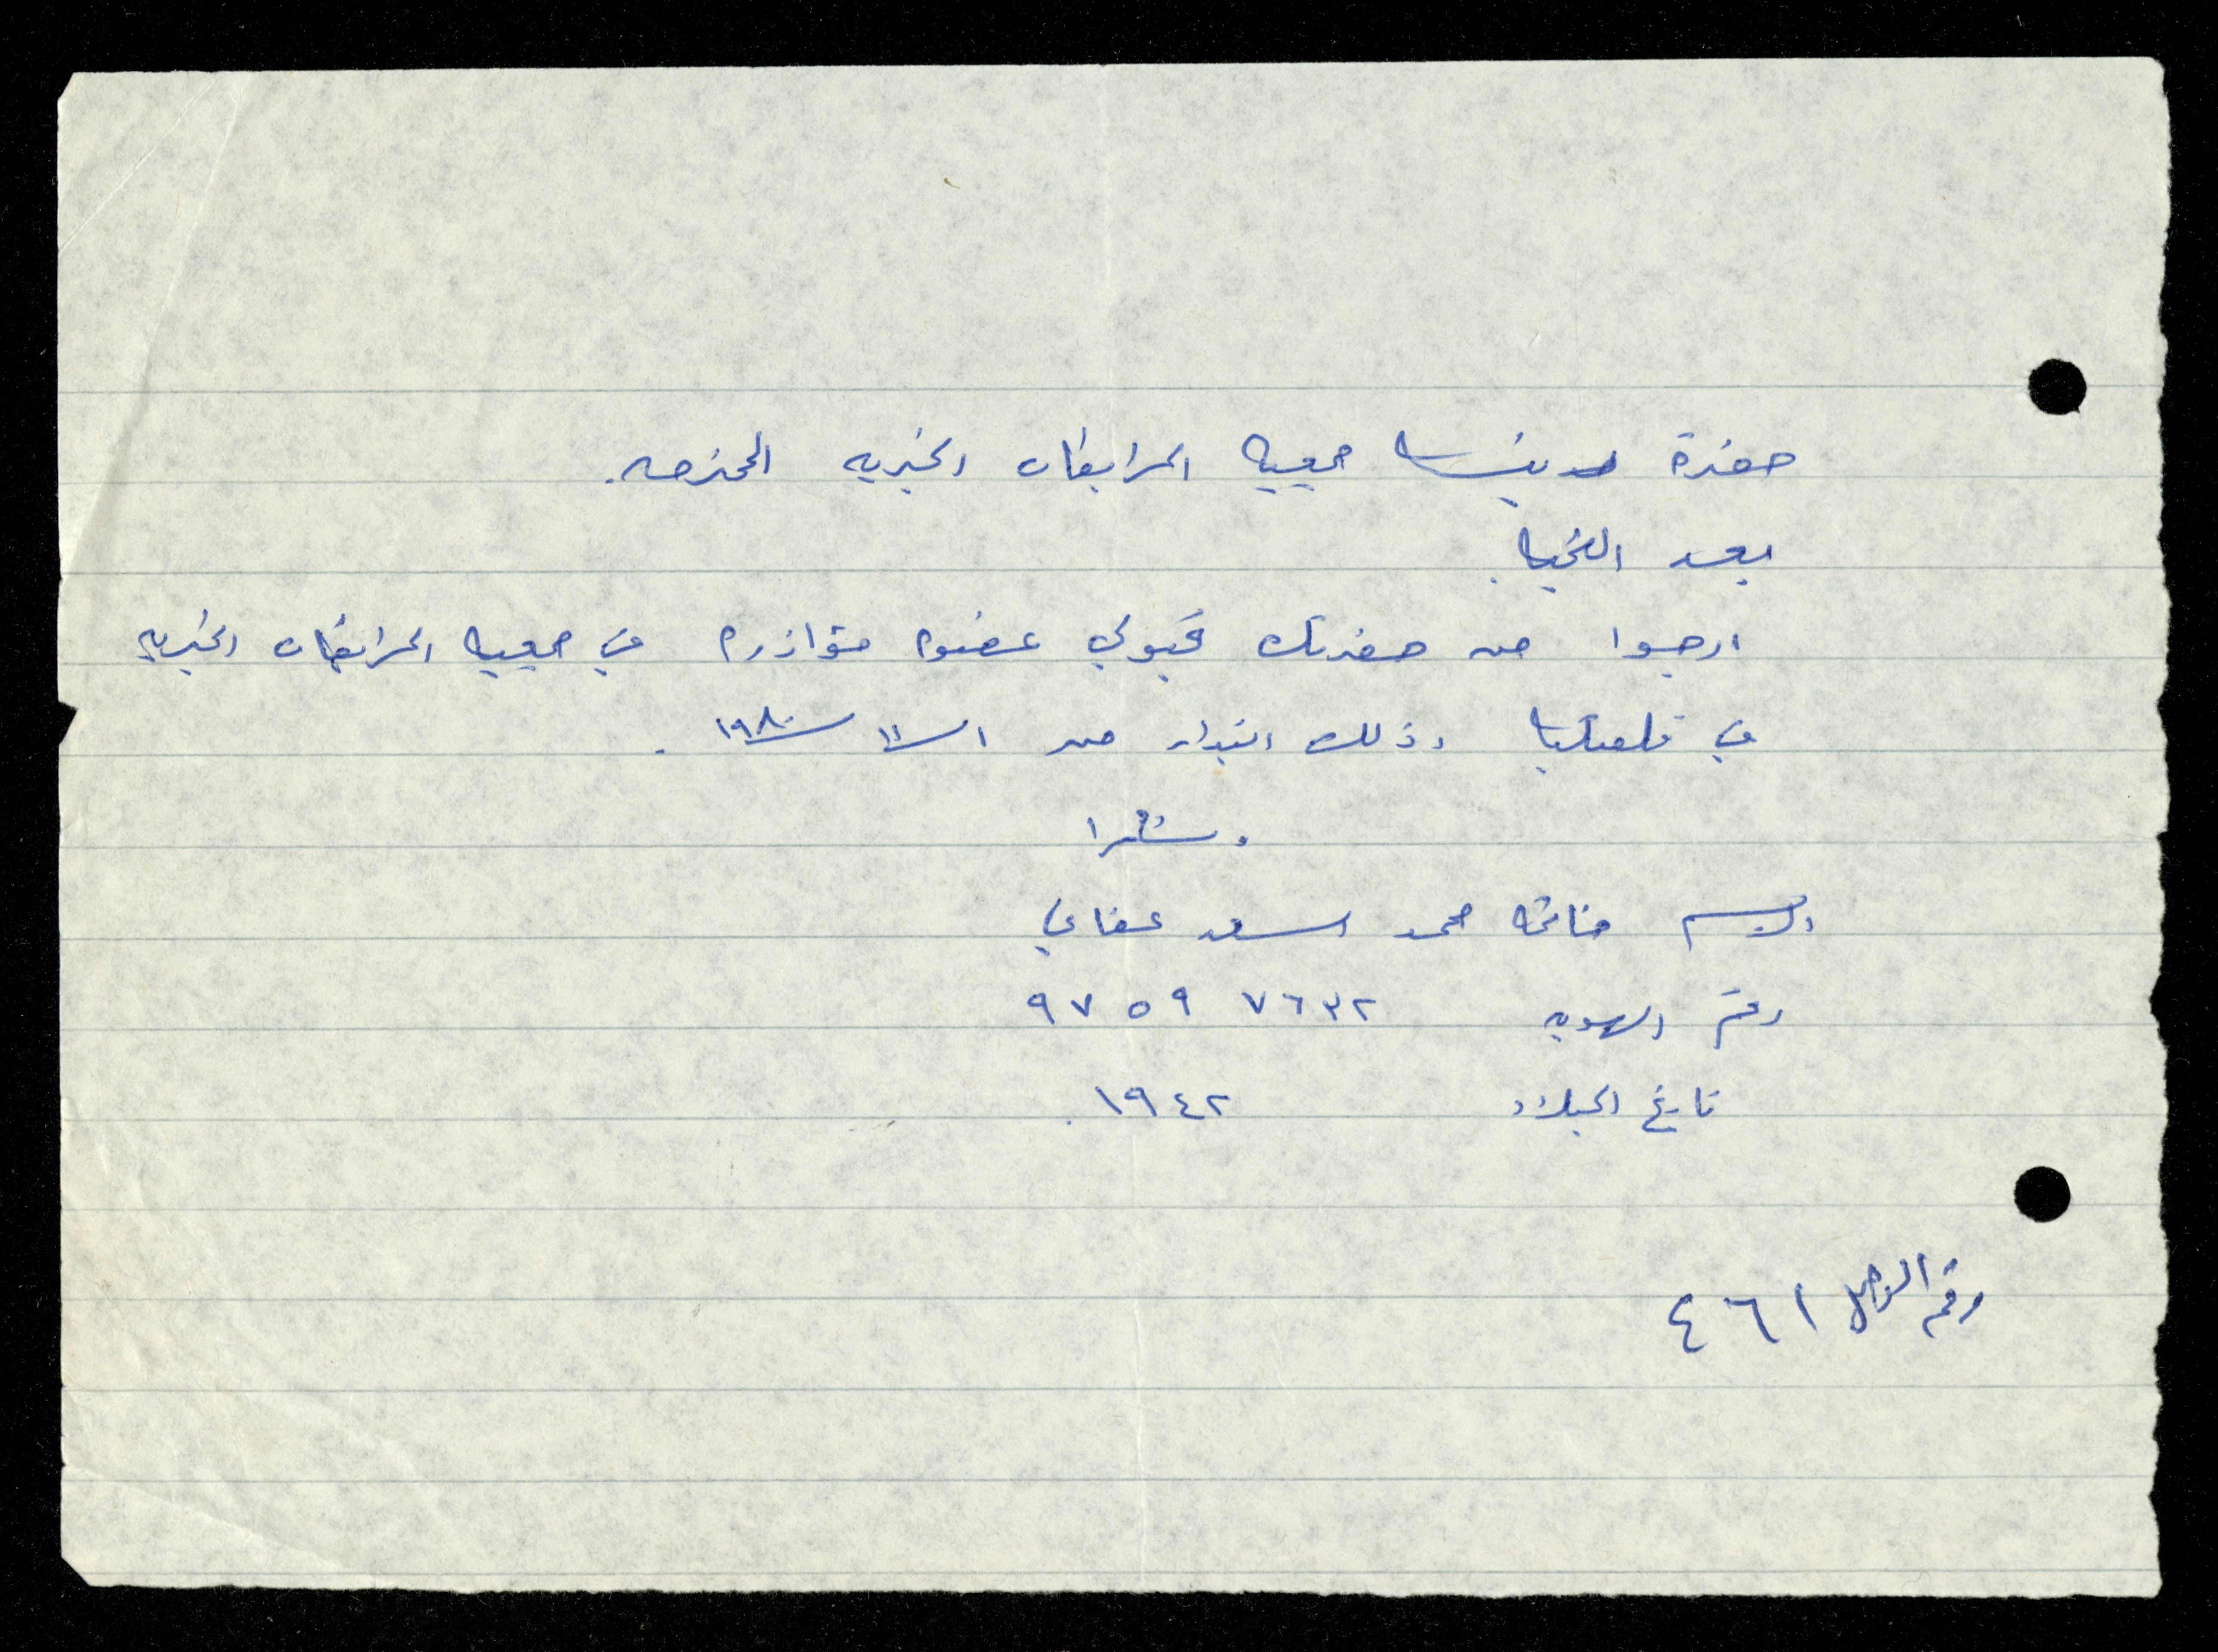 حضرة رئيسة جمعية المرابطات الخيرية المحترمه.
بعد التحية.
ارجوا من حضرتك قبولي عضوه مؤازره في جمعية المرابطات الخيريه
في قلقيلية وذلك ابتداء من ١/١/١٩٨٠.
وشكرا
الاسم فاطمة محمد اسعد عفاني
رقم الهويه ٩٧٥٩ ٧٦٣٢
تاريخ الميلاد ١٩٤٢.
رقم الوصل ٤٦١